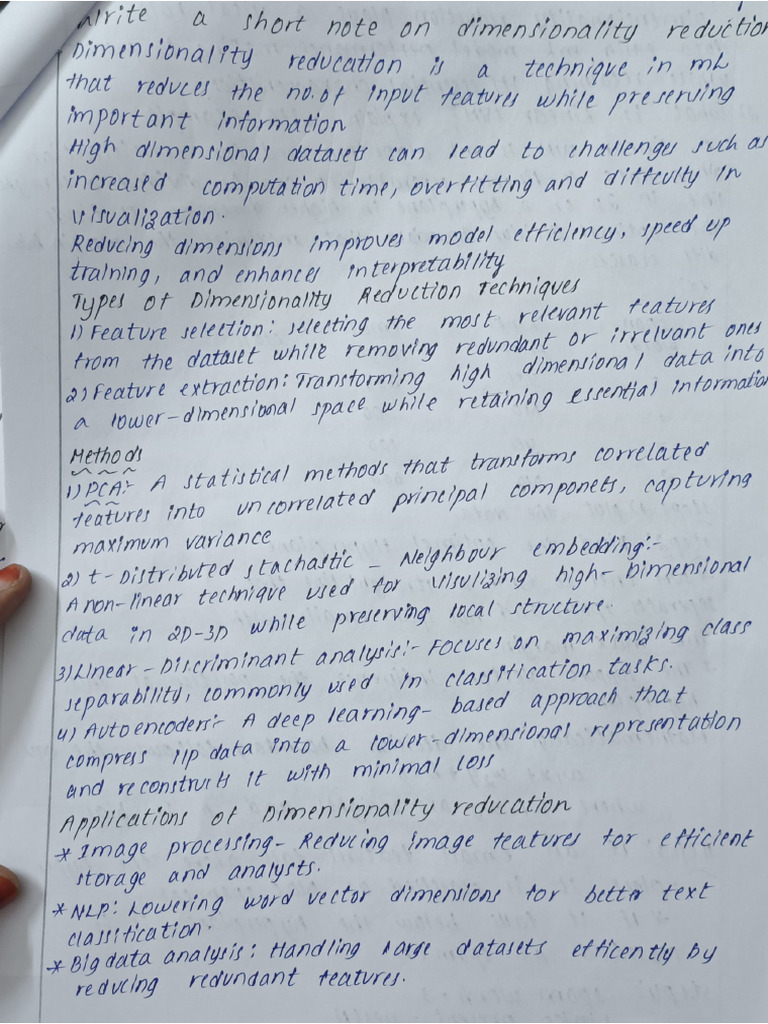 Write a short note on dimensionality reduction
Dimensionality reducation is a technique in ML
that reduces the no.of input features while preserving
important information
High dimensional datasets can lead to challenges such as
increased computation time, overfitting and difficulty in
visualization.
Reducing dimensions improves model efficiency, speed up
training, and enhances interpretability
Types of Dimensionality Reduction Techniques
1) Feature selection: selecting the most relevant features
from the dataset while removing redundant or irrelvant ones
2) Feature extraction: Transforming high dimensional data into
a lower-dimensional space while retaining essential information
Methods
1) PCA:- A statistical methods that transforms correlated
features into uncorrelated principal componets, capturing
maximum variance
2) t-Distributed stachastic - Neighbour embedding:-
A non-linear technique used for visulizing high-Dimensional
data in 2D-3D while preserving local structure.
3) Linear-Discriminant analysis:- Focuses on maximizing class
separability, commonly used in classification tasks.
4) Autoencoders:- A deep learning-based approach that
compress i/p data into a lower-dimensional representation
and reconstructs it with minimal loss
Applications of Dimensionality reducation
* Image processing- Reducing image features for efficient
storage and analysts.
* NLP: Lowering word vector dimensions for better text
classification.
* Big data analysis: Handling Large datasets efficently by
reducing redundant features.